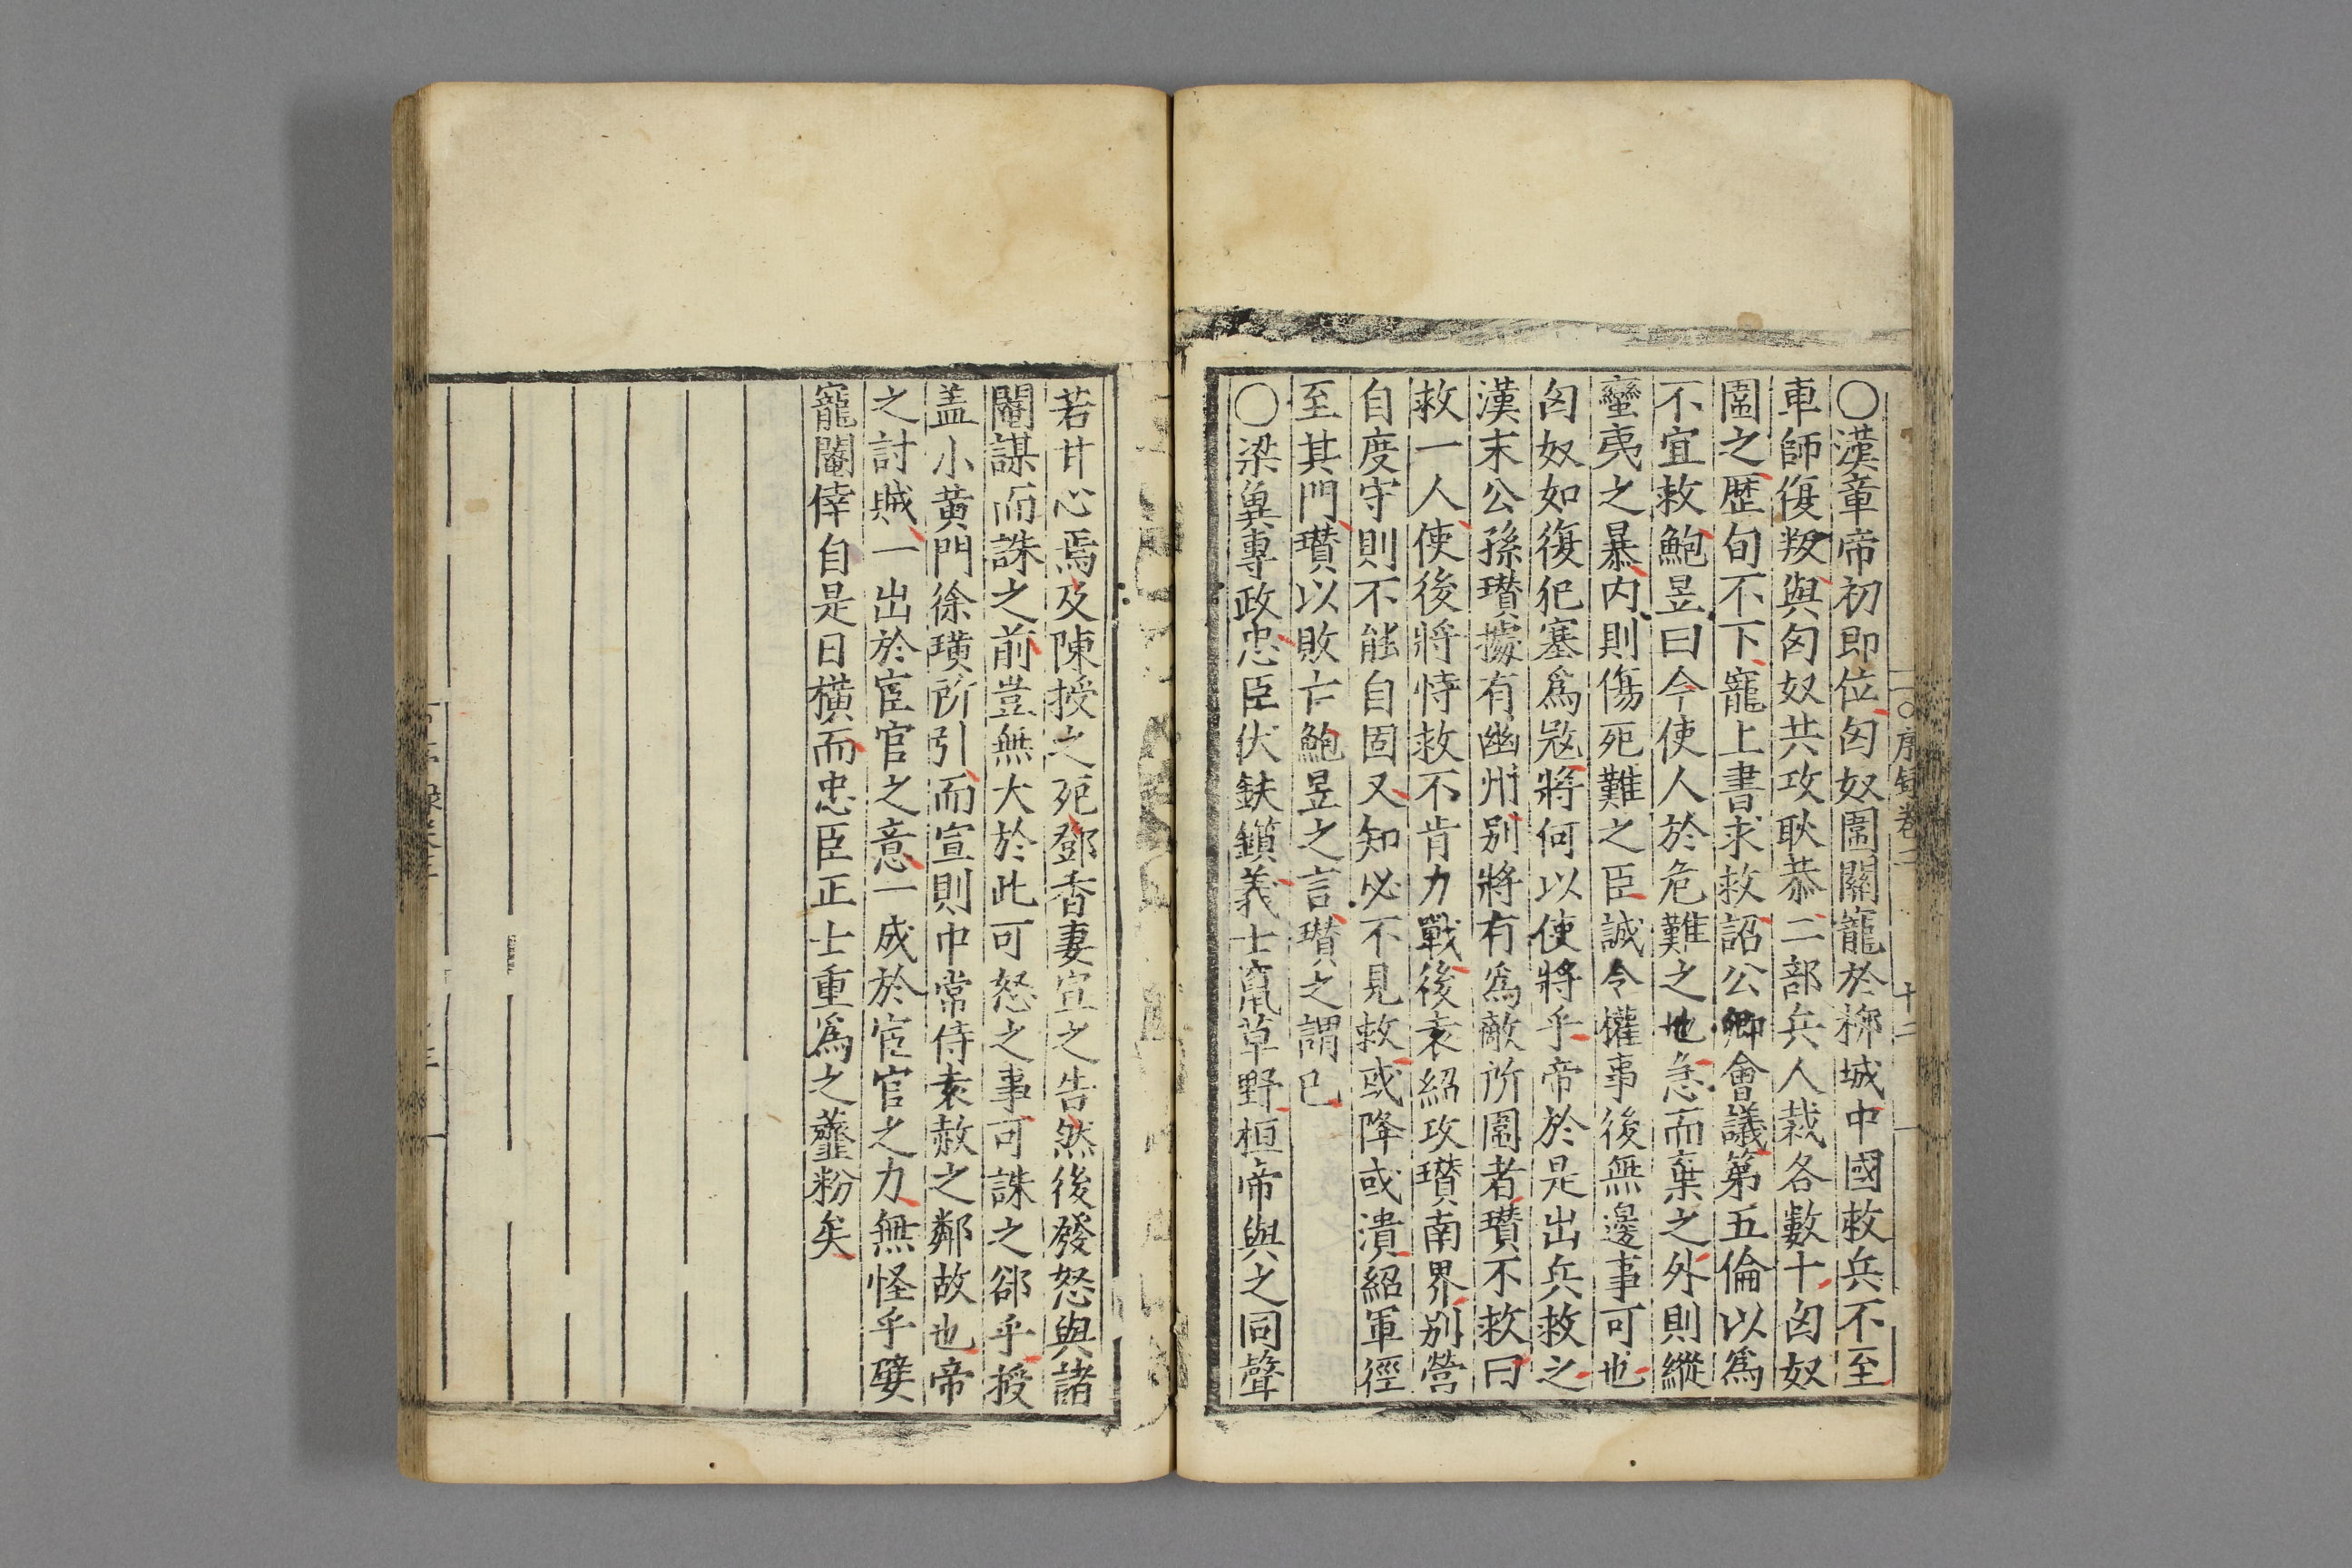 〇漢章帝初即位匈奴圍關寵於柳城中國救兵不至
車師復叛與匈奴共攻耿恭二部兵人裁各數十匈奴
圍之歴旬不下寵上書求救詔公卿會議第五倫以爲
不宜救鮑昱曰今使人於危難之地急而棄之外則縱
蠻夷之暴内則傷死難之臣誠令權事後無邊事可也
匈奴如復犯塞爲冦將何以使將乎帝於是出兵救之
漢末公孫瓉據有幽州别將有爲敵所圍者瓉不救曰
救一人使後將恃救不肯力戰後袁紹攻瓉南界别營
自度守則不能自固又知必不見救或降或潰紹軍徑
至其門瓉以敗亡鮑昱之言瓉之謂已
〇梁兾專政忠臣伏鈇鑕義士竄草野桓帝與之同聲
若甘心焉及陳授之死鄧香妻宣之告然後發怒與諸
閹謀而誅之前豈無大於此可怒之事可誅之郤乎授
盖小黄門徐璜所引而宣則中常侍袁赦之鄰故也帝
之討賊一出於宦官之意一成於宦官之力無怪乎嬖
寵閹倖自是日橫而忠臣正士重爲之虀粉矣